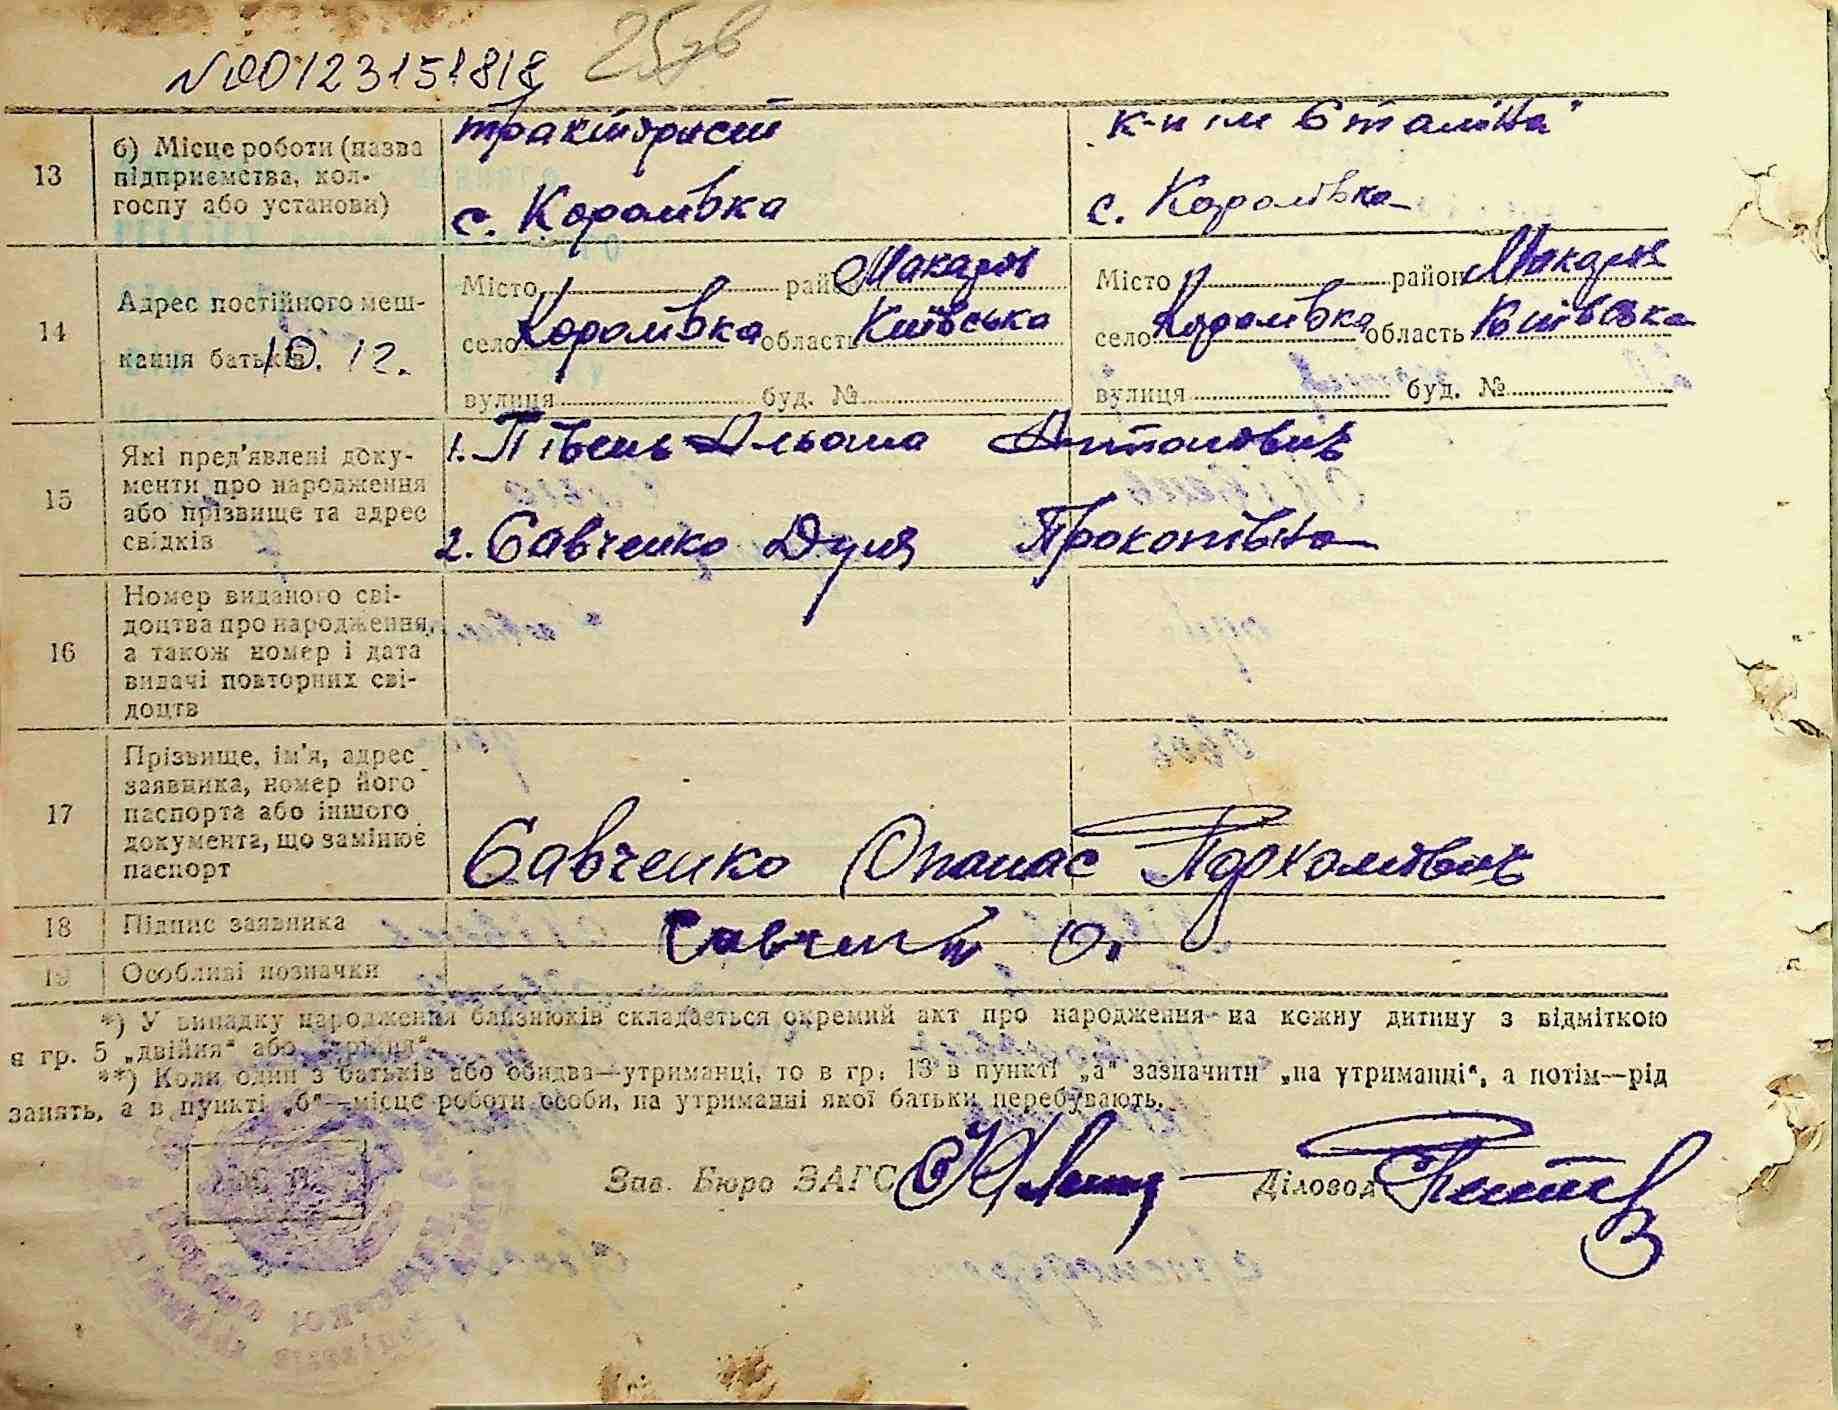 №00123151818 25зв
13 б) Місце роботи (назва підприємства, кол- тракторист к-п ім Сталіна"
госпу або установи) с. Королівка с. Королівка
14 Адрес постійного меш- Місто район Макарів Місто район Макарів
кання батьків 10.12. село Королівка область Київська село Королівка область Київська
вулиця буд. № вулиця буд. №
15 Які пред'явлені доку- 1. Півень Антонович
менти про народження
або прізвище та адрес
свідків 2. Савченко Дуня Прокопівна
16 Номер виданого сві-
доцтва про народження,
а також номер і дата
видачі повторних сві-
доцтв
17 Прізвище, ім'я, адрес
заявника, номер його
паспорта або іншого
документа, що замінює
паспорт Савченко Опанас Пархомович
18 Підпис заявника О.
19 Особливі позначки
*) У випадку народження близнюків складається окремий акт про народження на кожну дитину з відміткою
в гр. 5 „двійня“ або „трійня“
**) Коли один з батьків або обидва—утриманці, то в гр. 13 в пункті „а“ зазначити „на утриманні“, а потім—рід
занять, а в пункті „б“—місце роботи особи, на утриманні якої батьки перебувають.
Зав. Бюро ЗАГС Діловод